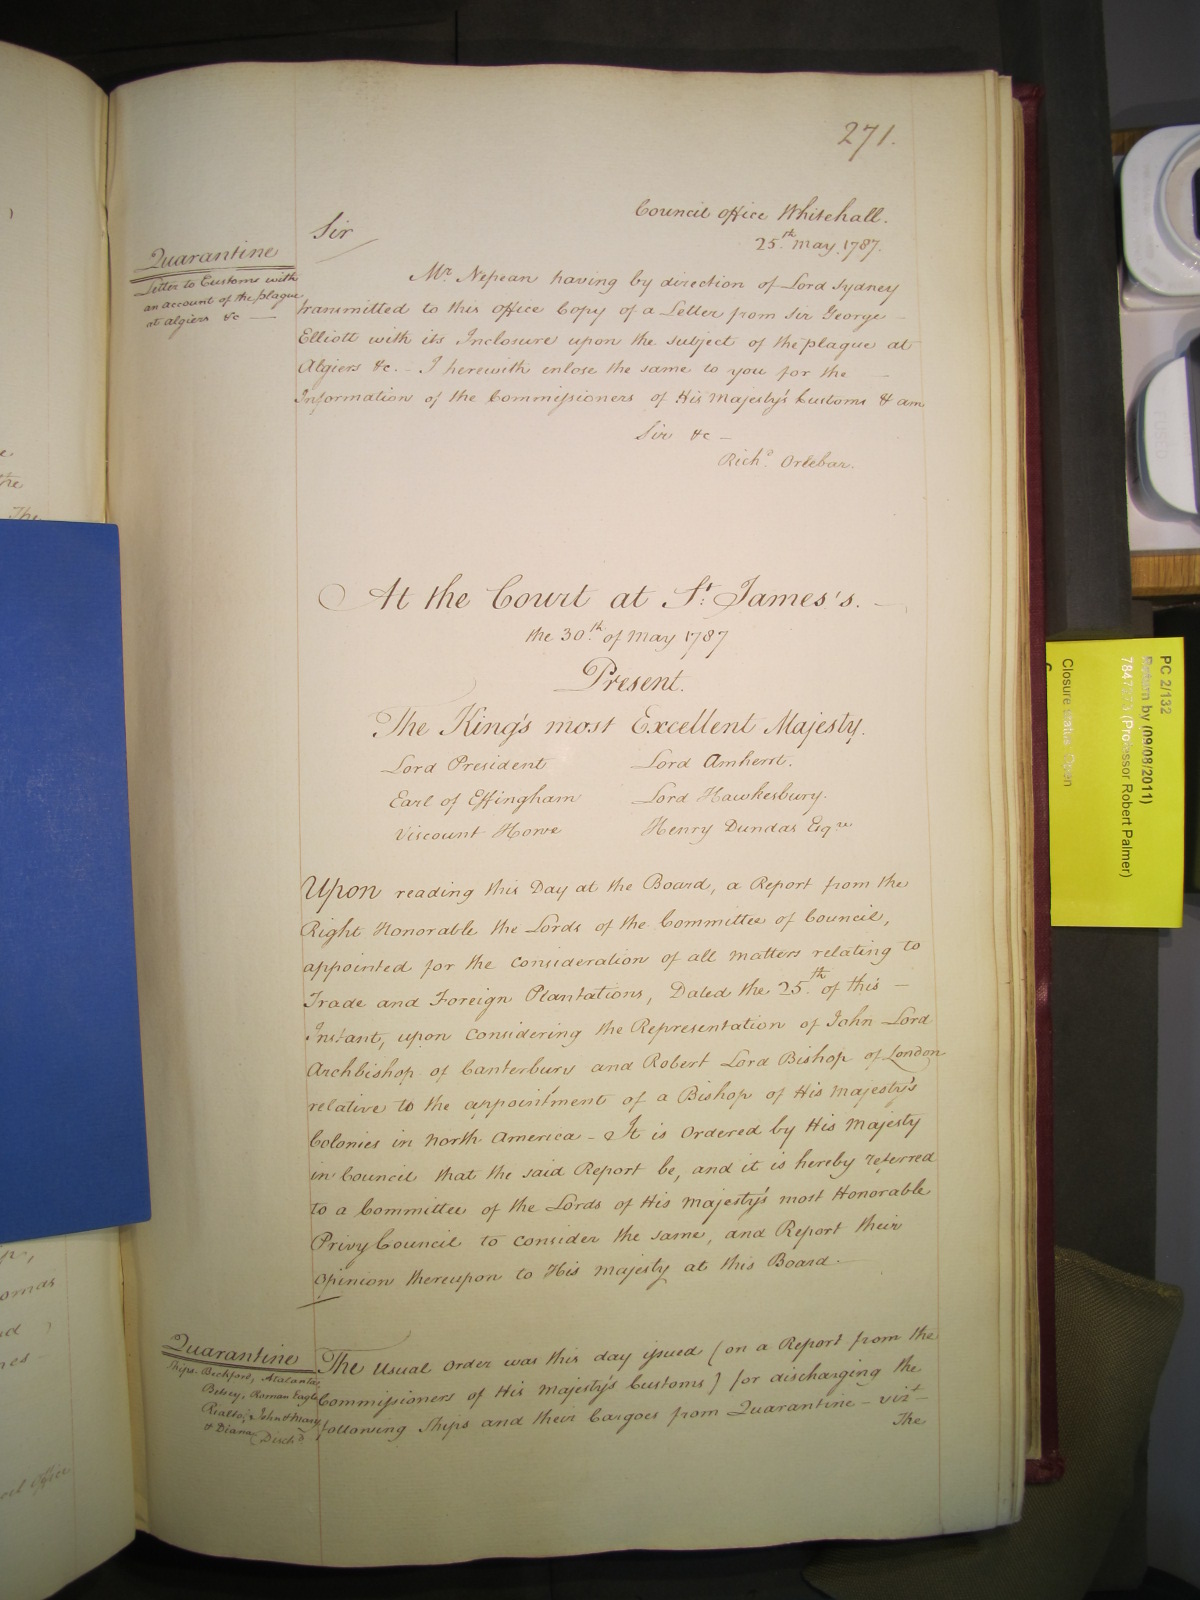 271.
Council office Whitehall.
25.th May. 1787.
Sir
Quarantine
Letter to Customs with
an account of the plague
at algiers &c
Mr. Nepean having by direction of Lord Sydney
transmitted to this office Copy of a Letter from Sir George
Elliott with its Inclosure upon the subject of the plague at
Algiers &c. - I herewith enlose the same to you for the
Information of the Commissioners of His Majesty's Customs & am
Sir &c -
Richd. Orlebar.
At the Court at St. James's.
the 30th. of May 1787
Present.
The King's most Excellent Majesty.
Lord President Lord Amherst.
Earl of Effingham Lord Hawkesbury.
Viscount Howe Henry Dundas Esqre.
Upon reading this Day at the Board, a Report from the
Right Honorable the Lords of the Committee of Council,
appointed for the consideration of all matters relating to
Trade and Foreign Plantations, Dated the 25.th of this -
Instant, upon considering the Representation of John Lord
Archbishop of Canterbury and Robert Lord Bishop of London
relative to the appointment of a Bishop of His Majesty's
Colonies in North America - It is Ordered by His Majesty
in Council that the said Report be, and it is hereby referred
to a Committee of the Lords of His Majesty's most Honorable
Privy Council to consider the same, and Report their
opinion thereupon to His Majesty at this Board.
Quarantine
Ships. Beckford, Atalanta,
Betsey, Roman Eagle
Rialto, John & Mary
& Diana Dischd
The usual order was this day issued (on a Report from the
Commissioners of His Majesty's Customs) for discharging the
following Ships and their Cargoes from Quarantine - vizt -
The
PC 2/132
Return by (09/08/2011)
(Professor Robert Palmer)
Closure status: Open
the
The
omas